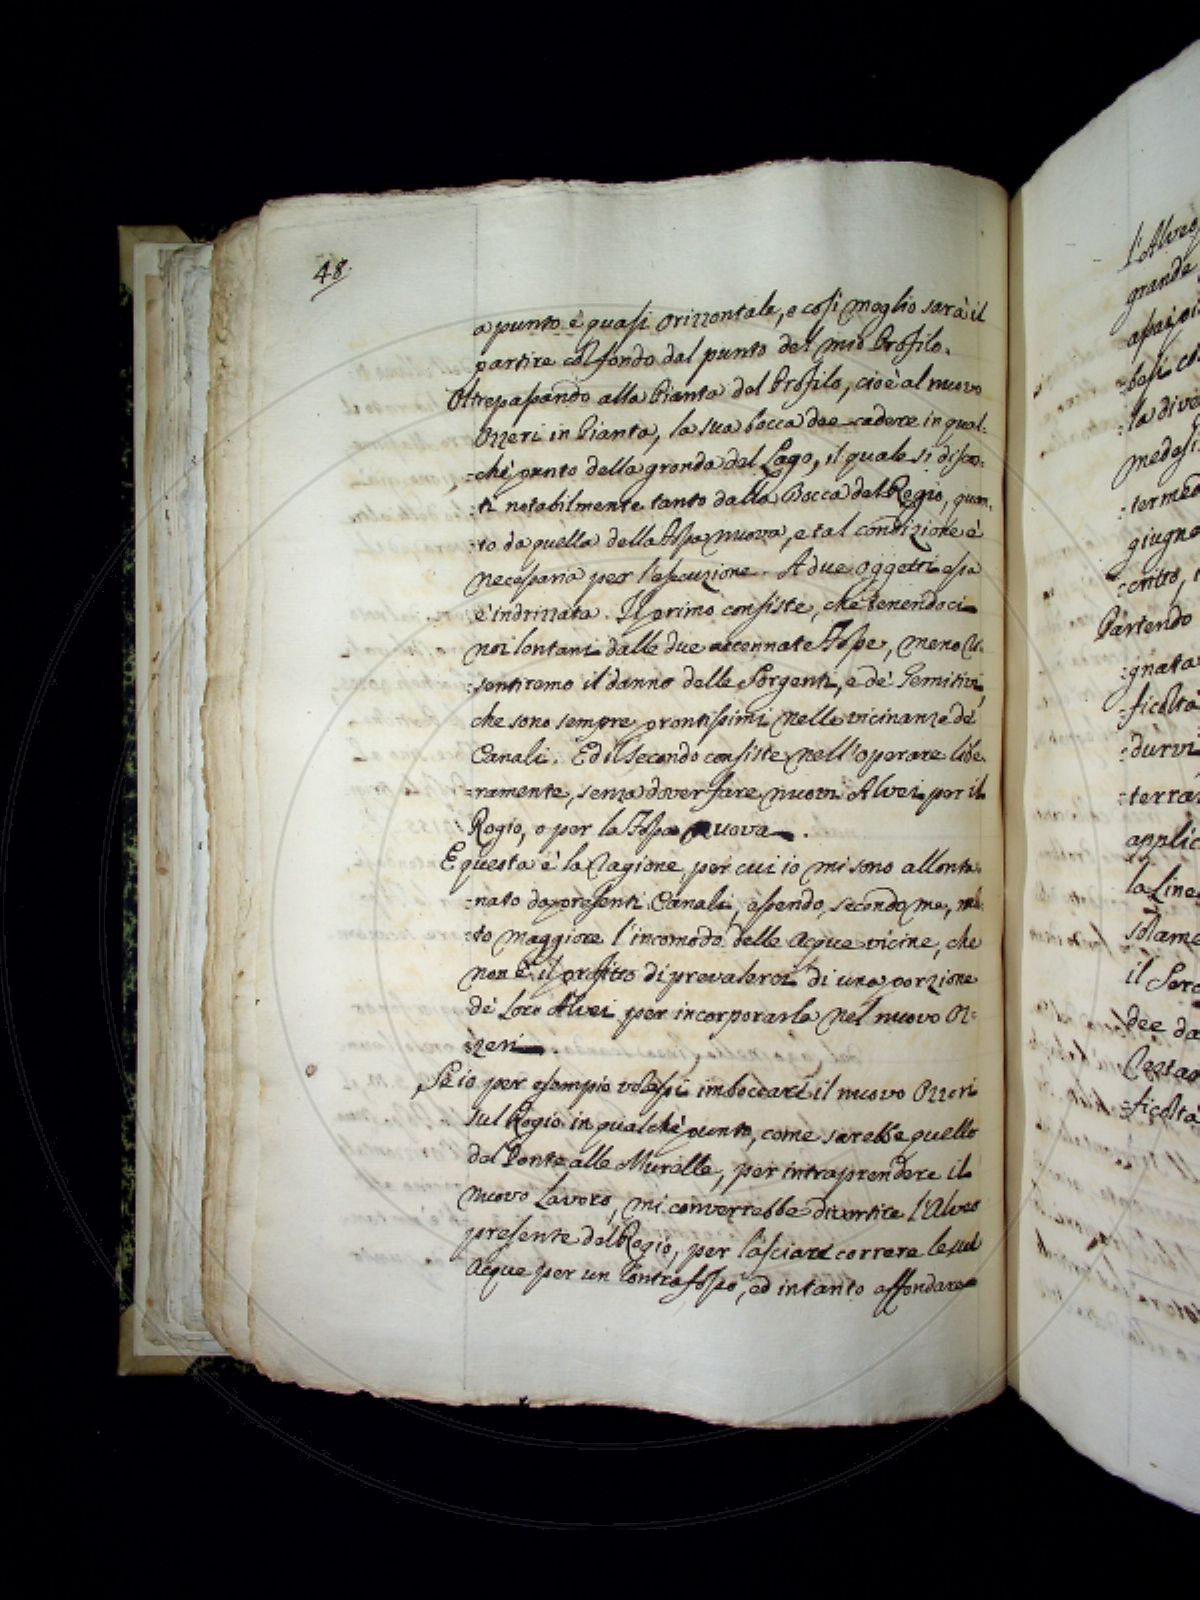 48.
a punto è quasi orizzontale, e così meglio sarà il
partire col fondo dal punto del mio Profilo.
Oltrepassando alla Pianta del Profilo, cioè al nuovo
Ozzeri in Pianta, la sua bocca dee cadere in qual-
=che punto della gronda del Lago, il quale si disco-
=ti notabilmente tanto dalla Bocca del Rogio, quan-
=to da quella della Fossa nuova, e tal condizione è
necessaria per l'esecuzione. A due oggetti essa
è indrizzata. Il primo consiste, che tenendoci
noi lontani dalle due accennate Fosse, meno ri-
=sentiremo il danno delle Sorgenti, e de' Gemitivi,
che sono sempre prontissimi nelle vicinanze de'
Canali. Ed il secondo consiste nell'operare libe-
=ramente, senza dover fare nuovi Alvei per il
Rogio, o per la Fossa nuova.
E questa è la ragione, per cui io mi sono allonta-
=nato da presenti Canali, essendo, secondo me, mol-
=to maggiore l'incomodo delle acque vicine, che
non è il profitto di prevalerci di una porzione
de' loro Alvei per incorporarla nel nuovo Oz-
=zeri
Se io per esempio volessi imboccare il nuovo Ozzeri
sul Rogio in qualche punto, come sarebbe quello
del Ponte alle Muralle, per intraprendere il
nuovo Lavoro, mi converrebbe divertire l'Alveo
presente del Rogio, per lasciare correre le sue
Acque per un Contrafosso, ed intanto affondare
l'Alveo
grande
assai
basi
=la dive
medesi
=terme
giugne
Partendo
=gnata
=ficolta
=durvi
=terra
applic
la Line
solame
il Serc
dee da
=ficoltà